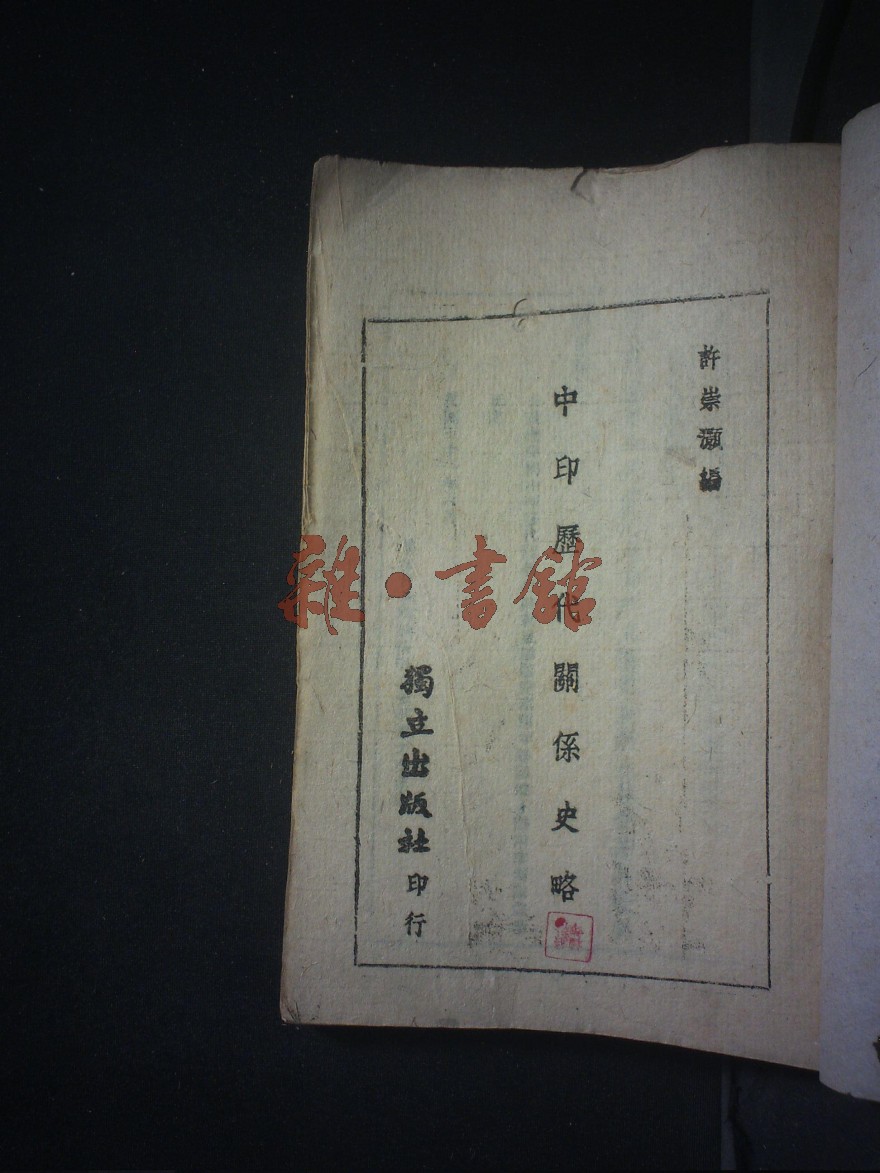 許崇灝編
中印歷代關係史略
獨立出版社印行
雜•書館